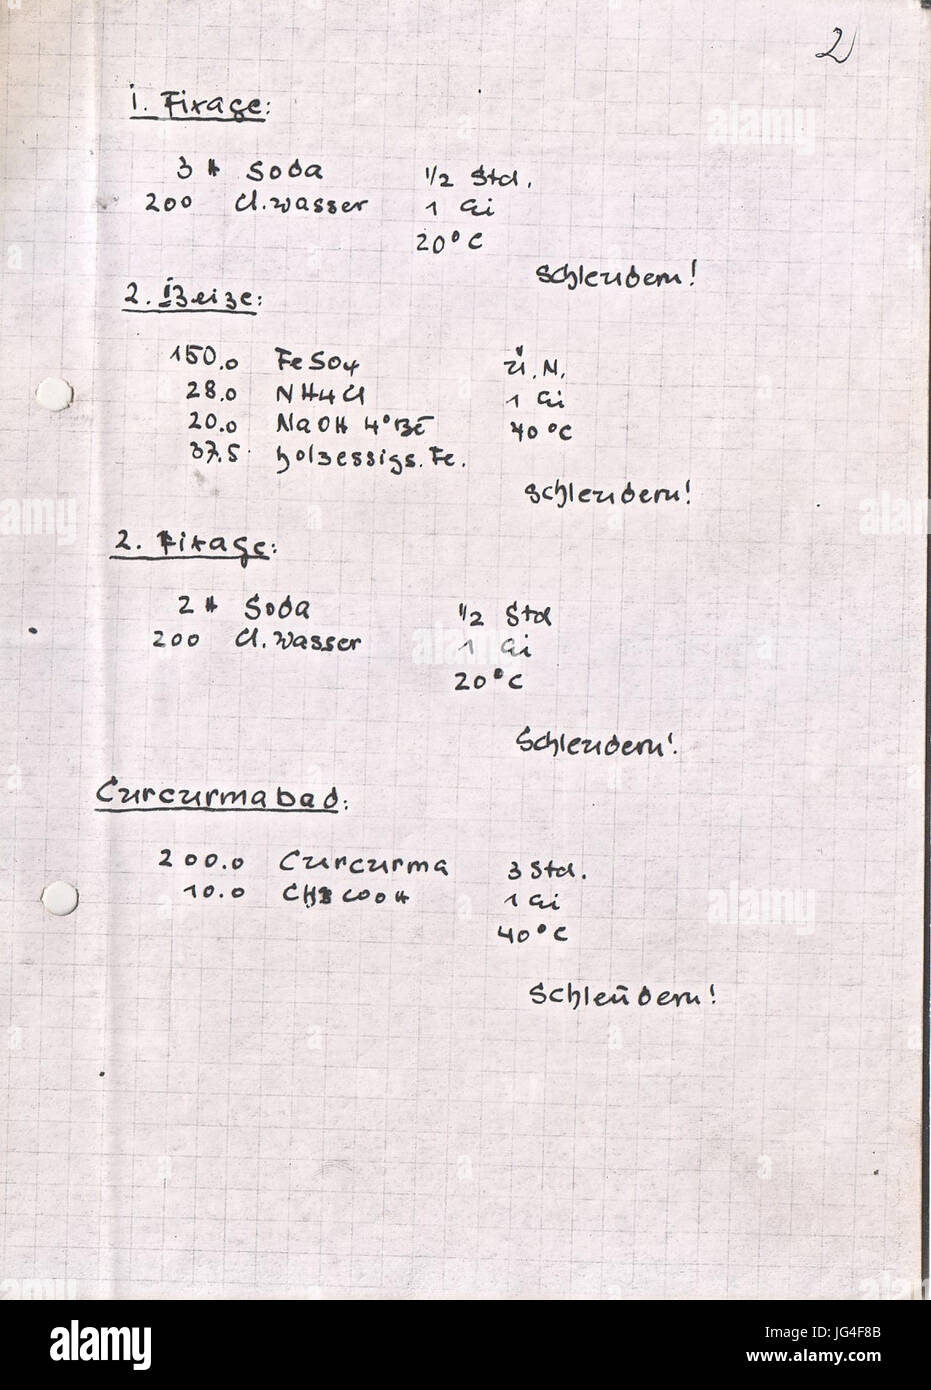 2
1. Fixage:
3 # Soda 1/2 Std.
200 Cl. Wasser 1 Gi
20° C
Schleudern!
2. Beize:
150.0 FeSO4 ü. N.
28.0 NH4Cl 1 Gi
20.0 NaOH 4° Bé 40° C
37.5 holzessigs. Fe.
Schleudern!
2. Fixage:
2 # Soda 1/2 Std
200 Cl. Wasser 1 Gi
20° C
Schleudern!
Curcurmabad:
200.0 Curcurma 3 Std.
10.0 CH3COOH 1 Gi
40° C
Schleudern!
alamy
Image ID: JG4F8B
www.alamy.com